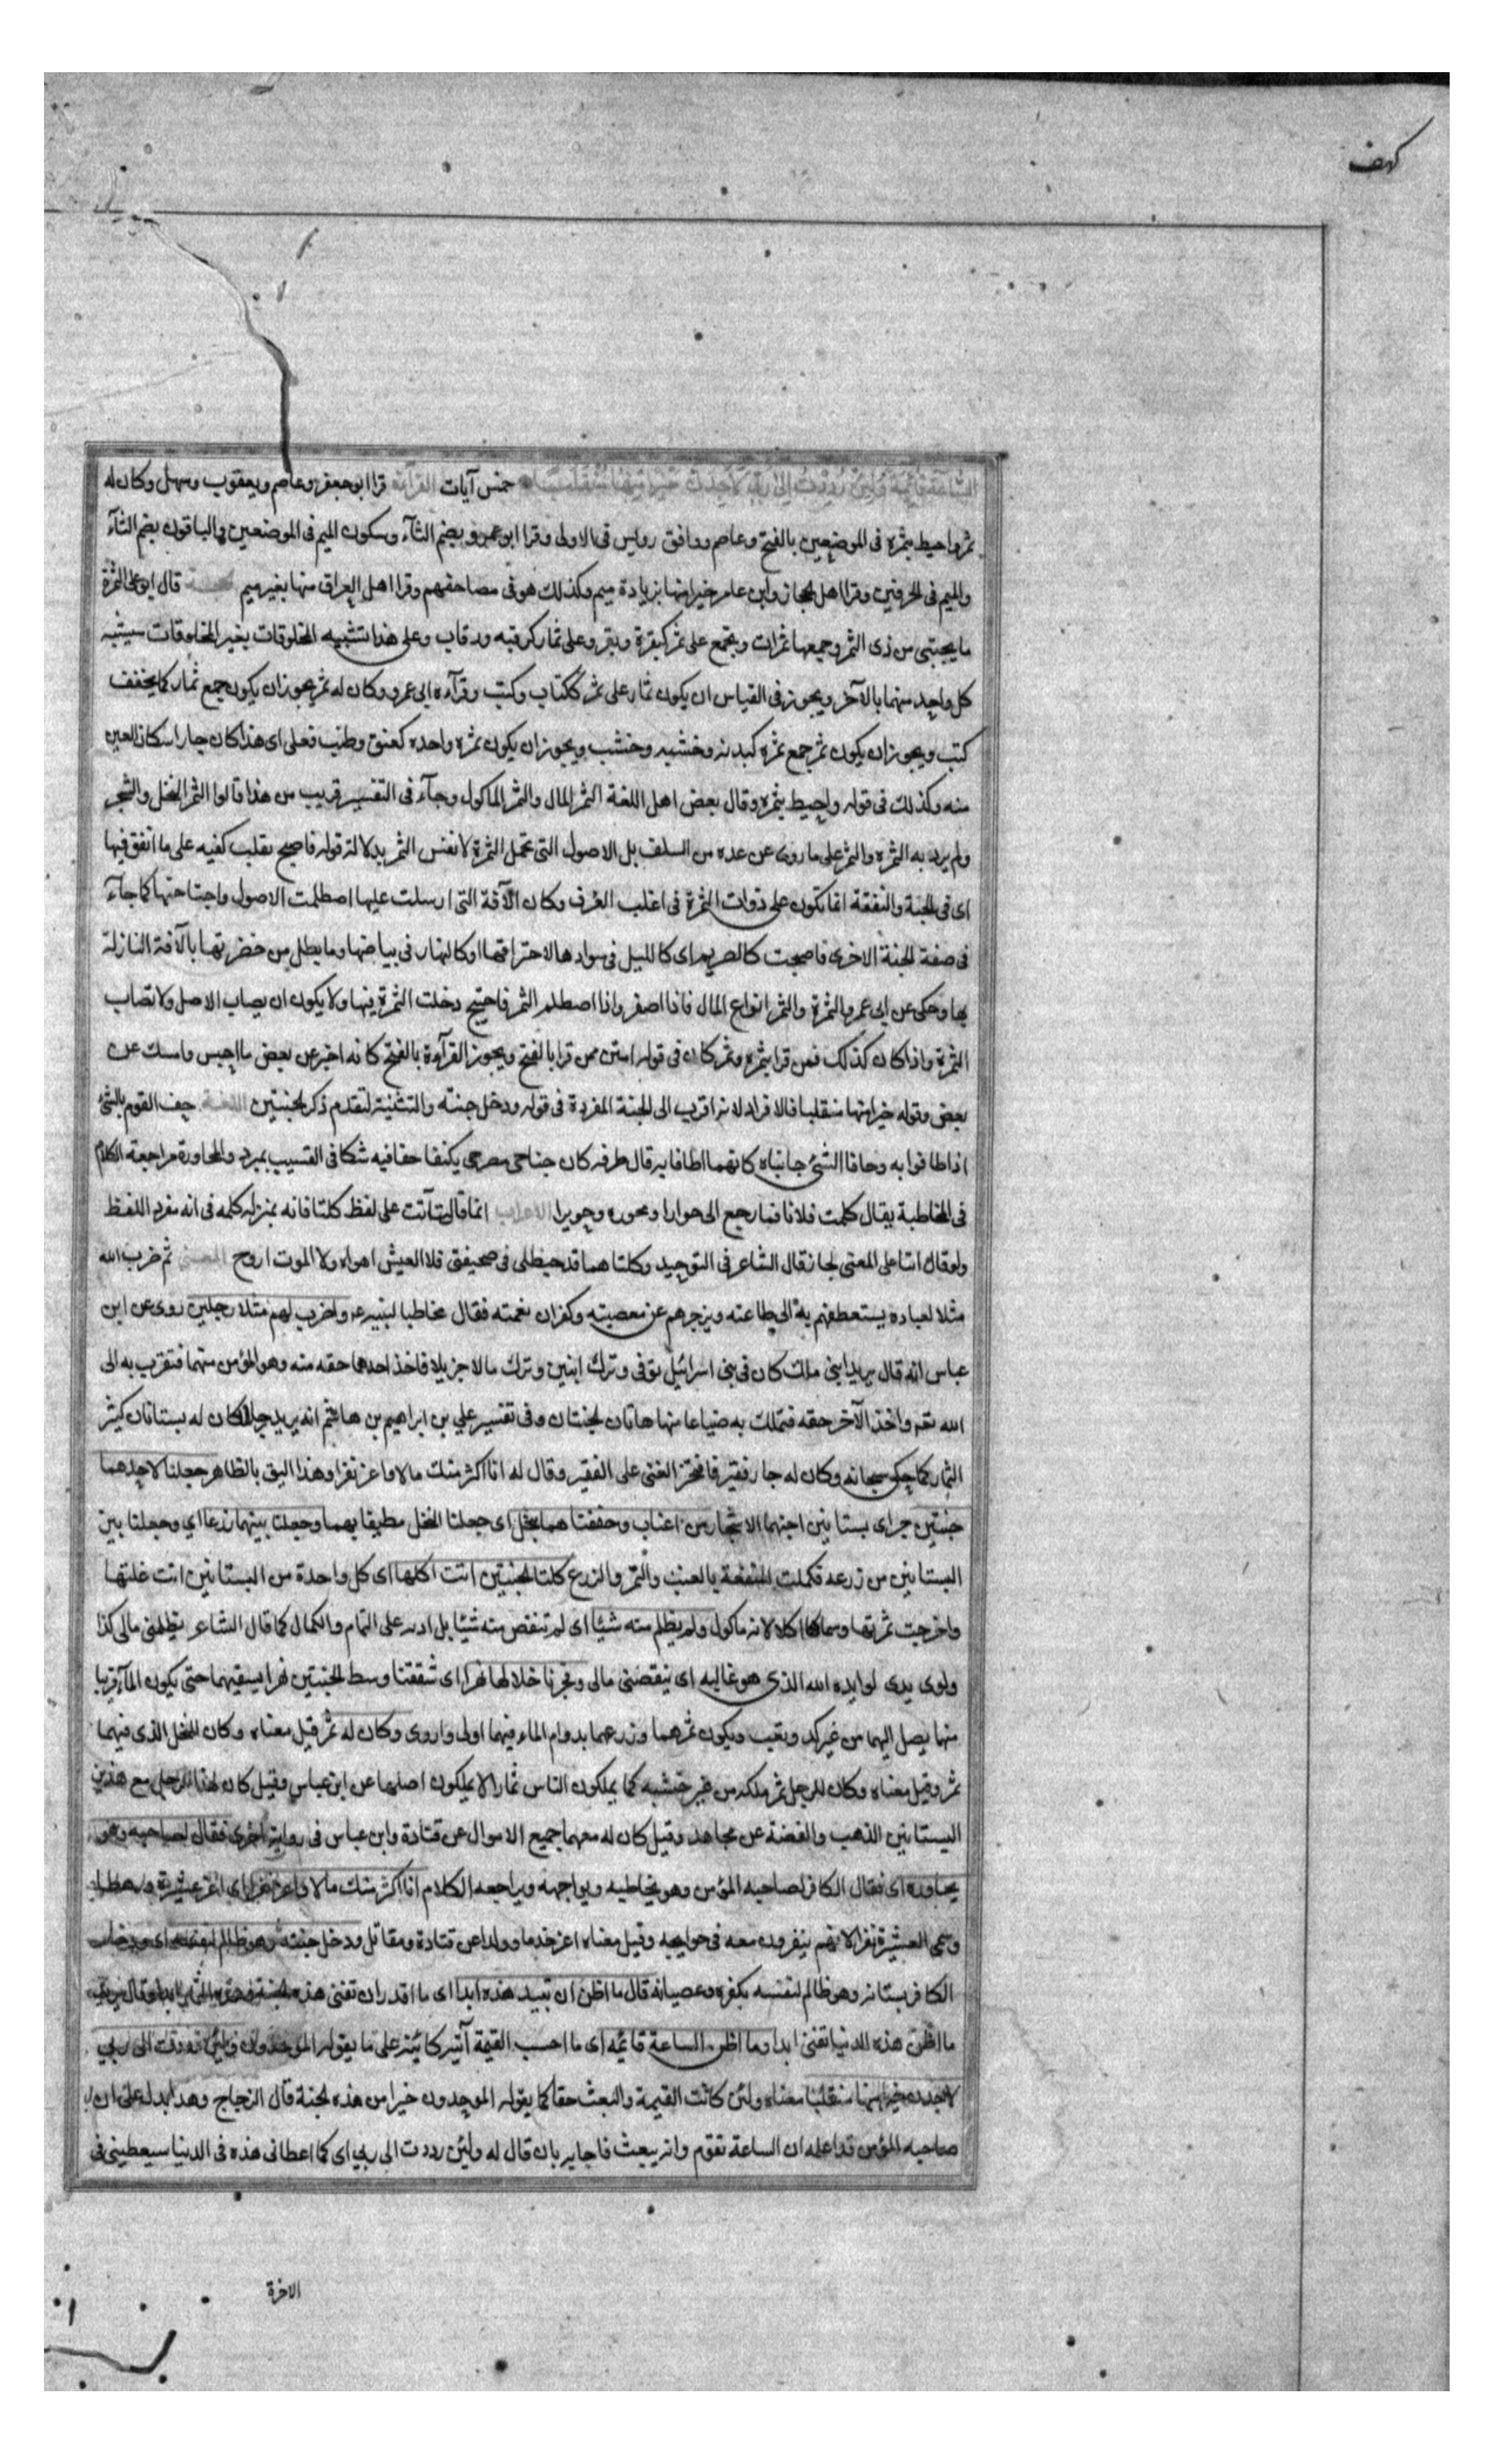 كهف
الساعة قائمة ولئن رددت الى ربى لاجدن خيرا منها منقلبا خمس آيات القرآءة قرا ابو جعفر وعاصم ويعقوب وسهل وكان له
ثمر واحيط بثمره فى الموضعين بالفتح وعاصم ووافق رويس فى الاولى وقرا ابو عمرو بضم الثآء وسكون الميم فى الموضعين والباقون بضم الثآء
والميم فى الحرفين وقرا اهل الحجاز وابن عامر خيرا منهما بزيادة ميم وكذلك هو فى مصاحفهم وقرا اهل العراق منها بغير ميم قال ابو على الثمرة
ما يجتنى من ذى الثمر وجمعها ثمرات ويجمع على ثمر كبقرة وبقر وعلى ثمار كرقبه ورقاب وعلى هذا تشبيه المخلوقات بغير المخلوقات سيشبه
كل واحد منهما بالآخر ويجوز فى القياس ان يكون ثمار على ثمر ككتاب وكتب وقرآءه ابى عمرو وكان له ثمر يجوز ان يكون جمع ثمار كما يخفف
كتب ويجوز ان يكون ثمر جمع ثمره كبدنه وخشبه وخشب ويجوز ان يكون ثمره واحده كعنق وطنب فعلى اى هذا كان جاز اسكان العين
منه وكذلك فى قوله واحيط بثمره وقال بعض اهل اللغة الثمر المال والثمر الماكول وجآء فى التفسير قريب من هذا قالوا الثمر النخل والشجر
ولم يرد به الثمره والثمر على ما روى عن عده من السلف بل الاصول التى تحمل الثمرة لا نفس الثمر بدلالة قوله فاصبح يقلب كفيه على ما انفق فيها
اى فى الجنة والنفقة انما تكون على ذوات الثمرة فى اغلب العرف وكان الآفة التى ارسلت عليها اصطلمت الاصول واجتاحتها كما جآء
فى صفة الجنة الاخرى فاصبحت كالصريم اى كالليل فى سوادها لاحتراقها او كالنهار فى بياضها وما بطل من خضرتها بالآفة النازلة
بها وحكى عن ابى عمرو الثمرة والثمر انواع المال فاذا اصفر واذا اصطلم الثمر فاجتيح دخلت الثمرة فيها ولا يكون ان يصاب الاصل ولا تصاب
الثمرة واذا كان كذلك فمن قرا بثمره وثمر كان فى قوله ابين ممن قرا بالفتح ويجوز القرآءة بالفتح كانه اخبر عن بعض ما احبس وامسك عن
بعض وقوله خيرا منها منقلبا فالافراد لانه اقرب الى الجنة المفردة فى قوله ودخل جنته والتثنية لتقدم ذكر الجنتين اللغة حف القوم بالشئ
اذا طافوا به وحافا الشئ جانباه كانهما اطافا به قال طرفه كان جناحى مضرحى يكنفا حفافيه شكا فى العسيب بمبرد والمحاورة مراجعة الكلام
فى المخاطبة يقال كلمت فلانا فما رجع الى حوارا ومحوره وحويرا الاعراب انما قال آتت على لفظ كلتا فانه بمنزله كلمه فى انه مفرد اللفظ
ولو قال اتتا على المعنى لجاز قال الشاعر فى التوحيد وكلتاهما قد خط لى فى صحيفتى فلا العيش اهواه ولا الموت اروح المعنى ثم ضرب الله
مثلا لعباده يستعطفهم به الى طاعته ويزجرهم عن معصيته وكفران نعمته فقال مخاطبا لنبيه ع واضرب لهم مثلا رجلين روى عن ابن
عباس انه قال يريد ابنى ملك كان فى بنى اسرائيل توفى وترك ابنين وترك مالا جزيلا فاخذ احدهما حقه منه وهو المؤمن منهما فتقرب به الى
الله تعه واخذ الآخر حقه فتملك به ضياعا منها هاتان الجنتان وفى تفسير علي بن ابراهيم بن هاشم انه يريد رجلا كان له بستانان كثير
الثمار كما حكى سبحانه وكان له جار فقير فافتخر الغنى على الفقير وقال له انا اكثر منك مالا واعز نفرا وهذا اليق بالظاهر جعلنا لاحدهما
جنتين جراى بستانين اجنهما الاشجار من اعناب وحففناهما بنخل اى جعلنا النخل مطيفا بهما وجعلنا بينهما زرعا اي وجعلنا بين
البستانين من زرعه فكملت المنفعة بالعنب والثمر والزرع كلتا الجنتين اتت اكلها اى كل واحدة من البستانين اتت غلتها
واخرجت ثمرتها وسماها اكلا لانه ماكول ولم يظلم منه شيئا اى لم تنقص منه شيئا بل ادته على التمام والكمال كما قال الشاعر يظلمنى مالى كذا
ولوى يدى لوايده الله الذى هو غالبه اى ينقصنى مالى وفجرنا خلالهما نهرا اى شققنا وسط الجنتين نهرا يسقيهما حتى يكون المآء قريبا
منها يصل اليهما من غير كد وتعب ويكون ثمرهما وزرعهما بدوام الماء فيهما اولى واروى وكان له ثمر قيل معناه وكان للنخل الذى فيهما
ثمر وقيل معناه وكان للرجل ثمر ملكه من غير خشبه كما يملكون الناس ثمارا لا يملكون اصلها عن ابن عباس وقيل كان لهذا الرجل مع هذين
البستانين الذهب والفضة عن مجاهد وقيل كان له معهما جميع الاموال عن قتادة وابن عباس فى رواية اخرى فقال لصاحبه وهو
يحاوره اى فقال الكافر لصاحبه المؤمن وهو يخاطبه ويواجهه ويراجعه الكلام انا اكثر منك مالا واعز نفرا اى اعز عشيرة ورهطا
وسمى العشيرة نفرا لانهم ينفرون معه فى حوايجه وقيل معناه اعز خدما وولدا عن قتادة ومقاتل ودخل جنته وهو ظالم لنفسه اى ودخل
الكافر بستانه وهو ظالم لنفسه بكفره وعصيانه قال ما اظن ان تبيد هذه ابدا اى ما اقدر ان تفنى هذه الجنة وهذه الثمار ابدا وقال يريد
ما اظن هذه الدنيا تفنى ابدا وما اظن الساعة قائمه اى ما احسب القيمة آتية كائنة على ما يقوله الموحدون ولئن رددت الى ربي
لاجدن خيرا منها منقلبا معناه ولئن كانت القيمة والبعث حقا كما يقوله الموحدون خيرا من هذه الجنة قال الزجاج وهذا يدل على ان
صاحبه المؤمن قد اعلمه ان الساعة تقوم وانه يبعث فاجابه بان قال له ولئن رددت الى ربي اى كما اعطانى هذه فى الدنيا سيعطينى فى
الاخرة